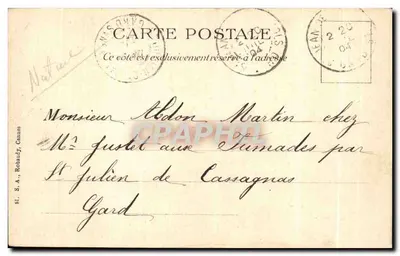 CARTE POSTALE
Ce côté est exclusivement réservé à l'adresse
Nature
Monsieur Abdon Martin chez
Mr Justet aux Fumades par
St Julien de Cassagnas
Gard
CPAPHIL